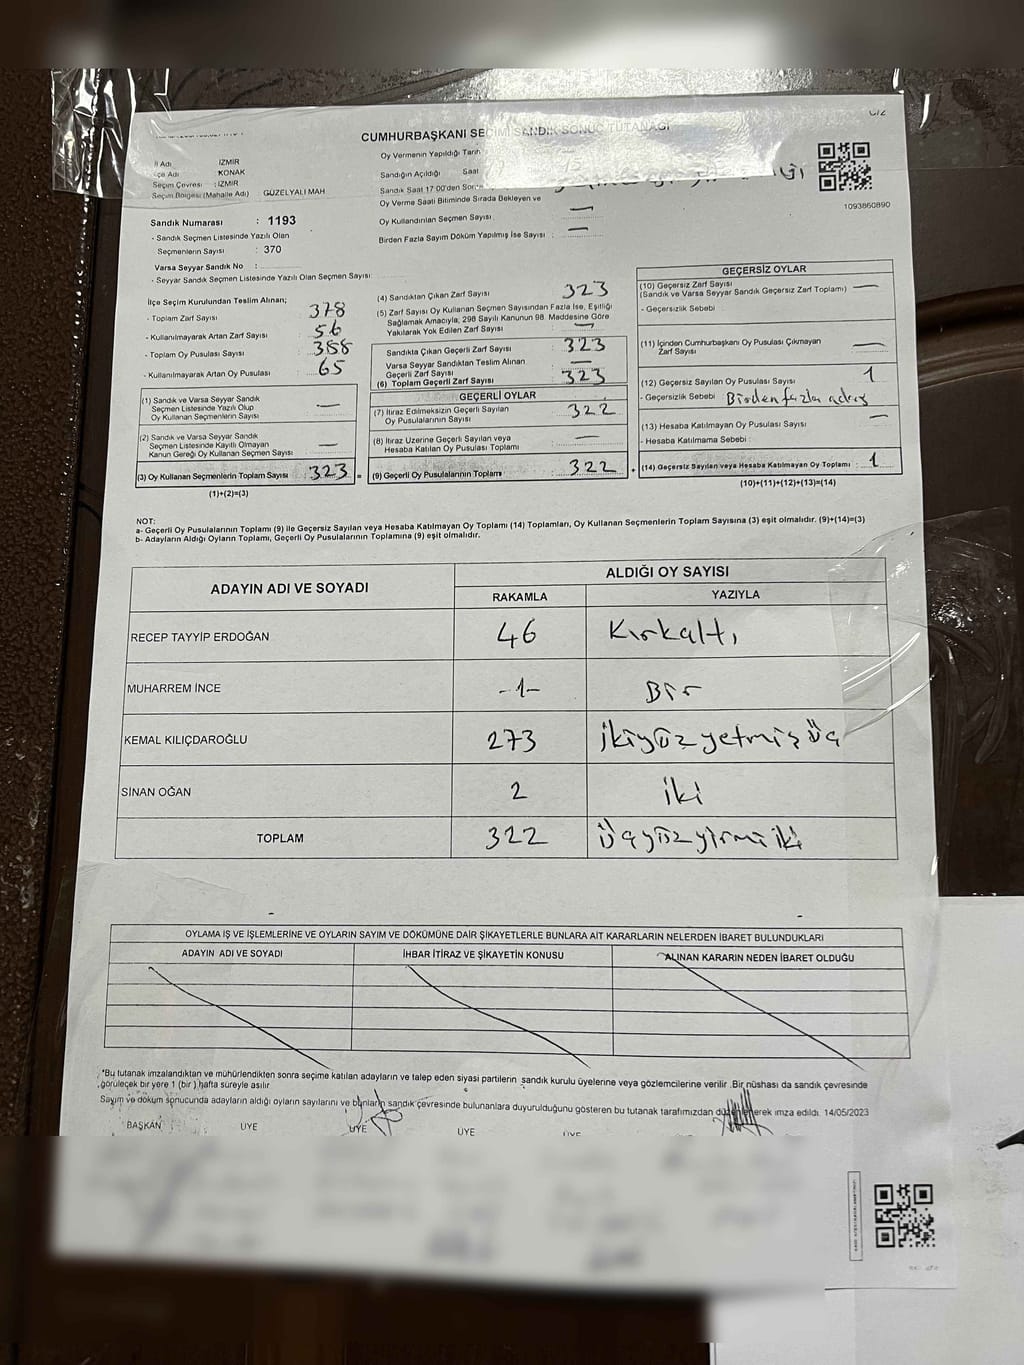 C/2
CUMHURBAŞKANI SEÇİMİ SANDIK SONUÇ TUTANAĞI
İl Adı İZMİR
İlçe Adı KONAK
Seçim Çevresi : İZMİR
Seçim Bölgesi (Mahalle Adı) GÜZELYALI MAH
Sandık Numarası : 1193
- Sandık Seçmen Listesinde Yazılı Olan
Seçmenlerin Sayısı : 370
Varsa Seyyar Sandık No :
- Seyyar Sandık Seçmen Listesinde Yazılı Olan Seçmen Sayısı:
Oy Vermenin Yapıldığı Tarih
Sandığın Açıldığı Saat
Sandık Saat 17 00'den
Oy Verme Saati Bitiminde Sırada Bekleyen ve
Oy Kullandırılan Seçmen Sayısı : —
Birden Fazla Sayım Döküm Yapılmış İse Sayısı : —
1093860890
İlçe Seçim Kurulundan Teslim Alınan;
- Toplam Zarf Sayısı : 378
- Kullanılmayarak Artan Zarf Sayısı : 56
- Toplam Oy Pusulası Sayısı : 388
- Kullanılmayarak Artan Oy Pusulası : 65
(1) Sandık ve Varsa Seyyar Sandık
Seçmen Listesinde Yazılı Olup
Oy Kullanan Seçmenlerin Sayısı —
(2) Sandık ve Varsa Seyyar Sandık
Seçmen Listesinde Kayıtlı Olmayan
Kanun Gereği Oy Kullanan Seçmen Sayısı —
(3) Oy Kullanan Seçmenlerin Toplam Sayısı 323 =
(1)+(2)=(3)
(4) Sandıktan Çıkan Zarf Sayısı : 323
(5) Zarf Sayısı Oy Kullanan Seçmen Sayısından Fazla İse, Eşitliği
Sağlamak Amacıyla; 298 Sayılı Kanunun 98. Maddesine Göre
Yakılarak Yok Edilen Zarf Sayısı : —
Sandıkta Çıkan Geçerli Zarf Sayısı : 323
Varsa Seyyar Sandıktan Teslim Alınan
Geçerli Zarf Sayısı : —
(6) Toplam Geçerli Zarf Sayısı : 323
GEÇERLİ OYLAR
(7) İtiraz Edilmeksizin Geçerli Sayılan
Oy Pusulalarının Sayısı : 322
(8) İtiraz Üzerine Geçerli Sayılan veya
Hesaba Katılan Oy Pusulası Toplamı : —
(9) Geçerli Oy Pusulalarının Toplamı : 322 +
GEÇERSİZ OYLAR
(10) Geçersiz Zarf Sayısı
(Sandık ve Varsa Seyyar Sandık Geçersiz Zarf Toplamı) : —
- Geçersizlik Sebebi :
(11) İçinden Cumhurbaşkanı Oy Pusulası Çıkmayan
Zarf Sayısı : —
(12) Geçersiz Sayılan Oy Pusulası Sayısı : 1
- Geçersizlik Sebebi : Birden fazla aday
(13) Hesaba Katılmayan Oy Pusulası Sayısı : —
- Hesaba Katılmama Sebebi :
(14) Geçersiz Sayılan veya Hesaba Katılmayan Oy Toplamı : 1
(10)+(11)+(12)+(13)=(14)
NOT:
a- Geçerli Oy Pusulalarının Toplamı (9) ile Geçersiz Sayılan veya Hesaba Katılmayan Oy Toplamı (14) Toplamları, Oy Kullanan Seçmenlerin Toplam Sayısına (3) eşit olmalıdır. (9)+(14)=(3)
b- Adayların Aldığı Oyların Toplamı, Geçerli Oy Pusulalarının Toplamına (9) eşit olmalıdır.
ADAYIN ADI VE SOYADI
ALDIĞI OY SAYISI
RAKAMLA YAZIYLA
RECEP TAYYİP ERDOĞAN 46 Kırkaltı
MUHARREM İNCE -1- Bir
KEMAL KILIÇDAROĞLU 273 ikiyüz yetmiş üç
SİNAN OĞAN 2 iki
TOPLAM 322 üçyüz yirmi iki
OYLAMA İŞ VE İŞLEMLERİNE VE OYLARIN SAYIM VE DÖKÜMÜNE DAİR ŞİKAYETLERLE BUNLARA AİT KARARLARIN NELERDEN İBARET BULUNDUKLARI
ADAYIN ADI VE SOYADI İHBAR İTİRAZ VE ŞİKAYETİN KONUSU ALINAN KARARIN NEDEN İBARET OLDUĞU
*Bu tutanak imzalandıktan ve mühürlendikten sonra seçime katılan adayların ve talep eden siyasi partilerin sandık kurulu üyelerine veya gözlemcilerine verilir .Bir nüshası da sandık çevresinde
görülecek bir yere 1 (bir) hafta süreyle asılır
Sayım ve döküm sonucunda adayların aldığı oyların sayılarını ve bunların sandık çevresinde bulunanlara duyurulduğunu gösteren bu tutanak tarafımızdan düzenlenerek imza edildi. 14/05/2023
BAŞKAN ÜYE ÜYE ÜYE ÜYE